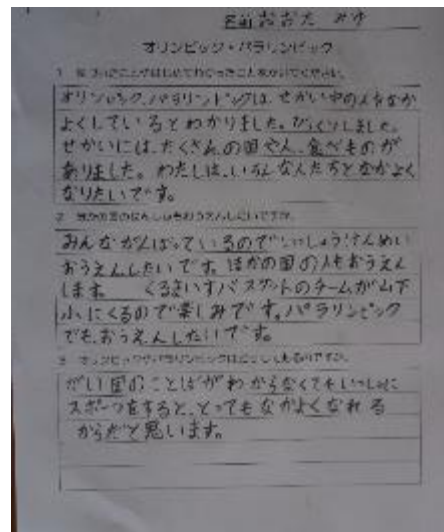 名前 おおた みゆ
オリンピック・パラリンピック
オリンピック、パラリンピックは、せかい中の人をなか
よくしているとわかりました。びっくりしました。
せかいには、たくさんの国や人、食べものが
ありました。わたしは、いろんな人たちとなかよく
なりたいです。
みんながんばっているので、いっしょうけんめい
おうえんしたいです。ほかの国の人もおうえん
します。 くるまいすバスケットのチームが山下
小にくるので楽しみです。パラリンピック
でも、おうえんしたいです。
3 オリンピックやパラリンピックはどうしてあるのですか。
がい国のことばがわからなくてもいっしょに
スポーツをすると、とってもなかよくなれる
からだと思います。